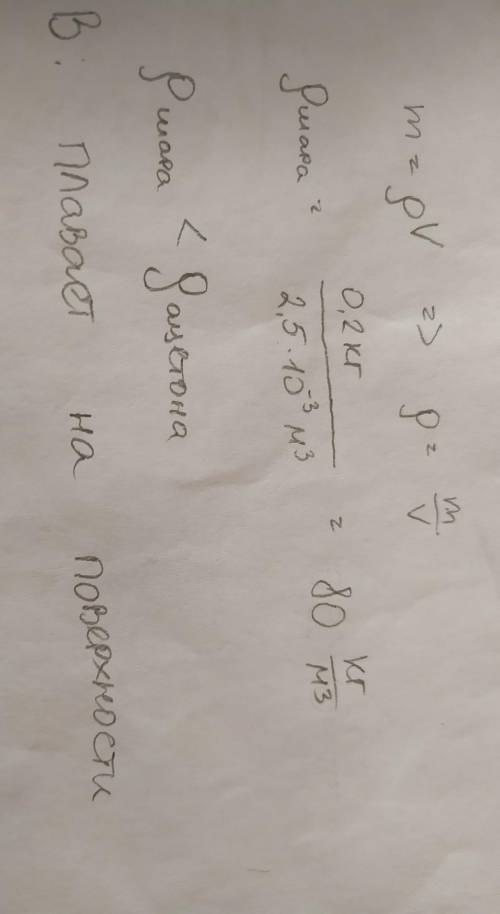 m = ρV => ρ = m/V
ρ шара = 0,2 кг / 2,5 · 10⁻³ м³ = 80 кг/м³
ρ шара < ρ ацетона
В: плавает на поверхности